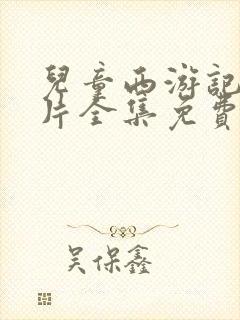 兒童西游記
片全集免費
吴保鑫